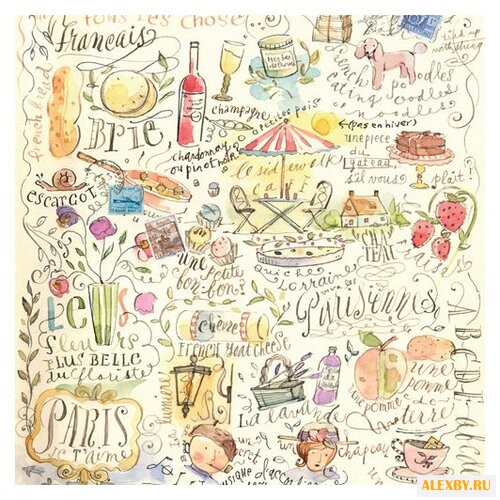 tous les chose
Français
french bread
BRIE
champagne
petits pois
très bon
chardonnay
ou pinot noir
French poodles
eating oodles
of noodles
tied up
with string
(pas en hiver)
une piece
du
gateau,
s'il vous plaît!
le sidewalk
CAFÉ
escargot
CHÂTEAU
une petite
bon-bon?
quiche
Lorraine
vive les
Parisiennes
Les
fleurs
PLUS BELLE
du fleuriste
chèvre
FRENCH goat cheese
lumière
La lavande
une
pomme
une pomme-de-
terre
PARIS
JE T'aime
un chapeau
ABCDE
ALEXBY.RU